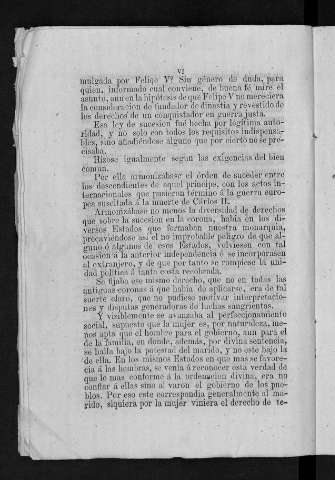 VI
mulgada por Felipe V? Sin género de duda, para
quien, informado cual conviene, de buena fé mire el
asunto, aun en la hipótesis de que Felipe V no mereciera
la consideracion de fundador de dinastía y revestido de
los derechos de un conquistador en guerra justa.
Esa ley de sucesion fué hecha por legítima auto-
ridad, y no solo con todos los requisitos indispensa-
bles, sino añadiéndose alguno que por cierto no se pre-
cisaba.
Hízose igualmente segun las exigencias del bien
comun.
Por ella armonizábase el órden de suceder entre
los descendientes de aquel príncipe, con los actos in-
ternacionales que pusieron término á la guerra euro-
pea suscitada á la muerte de Cárlos II.
Armonizábase no menos la diversidad de derechos
que sobre la sucesion en la corona, habia en los di-
versos Estados que formaban nuestra monarquía,
precaviéndose así el no improbable peligro de que al-
guno ó algunos de esos Estados, volviesen con tal
ocasion á la anterior independencia ó se incorporasen
al extranjero, y de que por tanto se rompiese la uni-
dad política á tanta costa recobrada.
Se fijaba ese mismo derecho, que no en todas las
antiguas coronas á que habia de aplicarse, era de tal
suerte claro, que no pudiese motivar interpretacio-
nes y disputas generadoras de luchas sangrientas.
Y visiblemente se avanzaba al perfeccionamiento
social, supuesto que la mujer es, por naturaleza, me-
nos apta que el hombre para el gobierno, aun para el
de la familia, en donde, además, por divina sentencia,
se halla bajo la potestad del marido, y no este bajo la
de ella. En los mismos Estados en que mas se favore-
cia á las hembras, se venia á reconocer esta verdad de
que lo mas conforme á la ordenacion divina, era no
confiar á ellas sino al varon el gobierno de los pue-
blos. Por eso este correspondia generalmente al ma-
rido, siquiera por la mujer viniera el derecho de te-